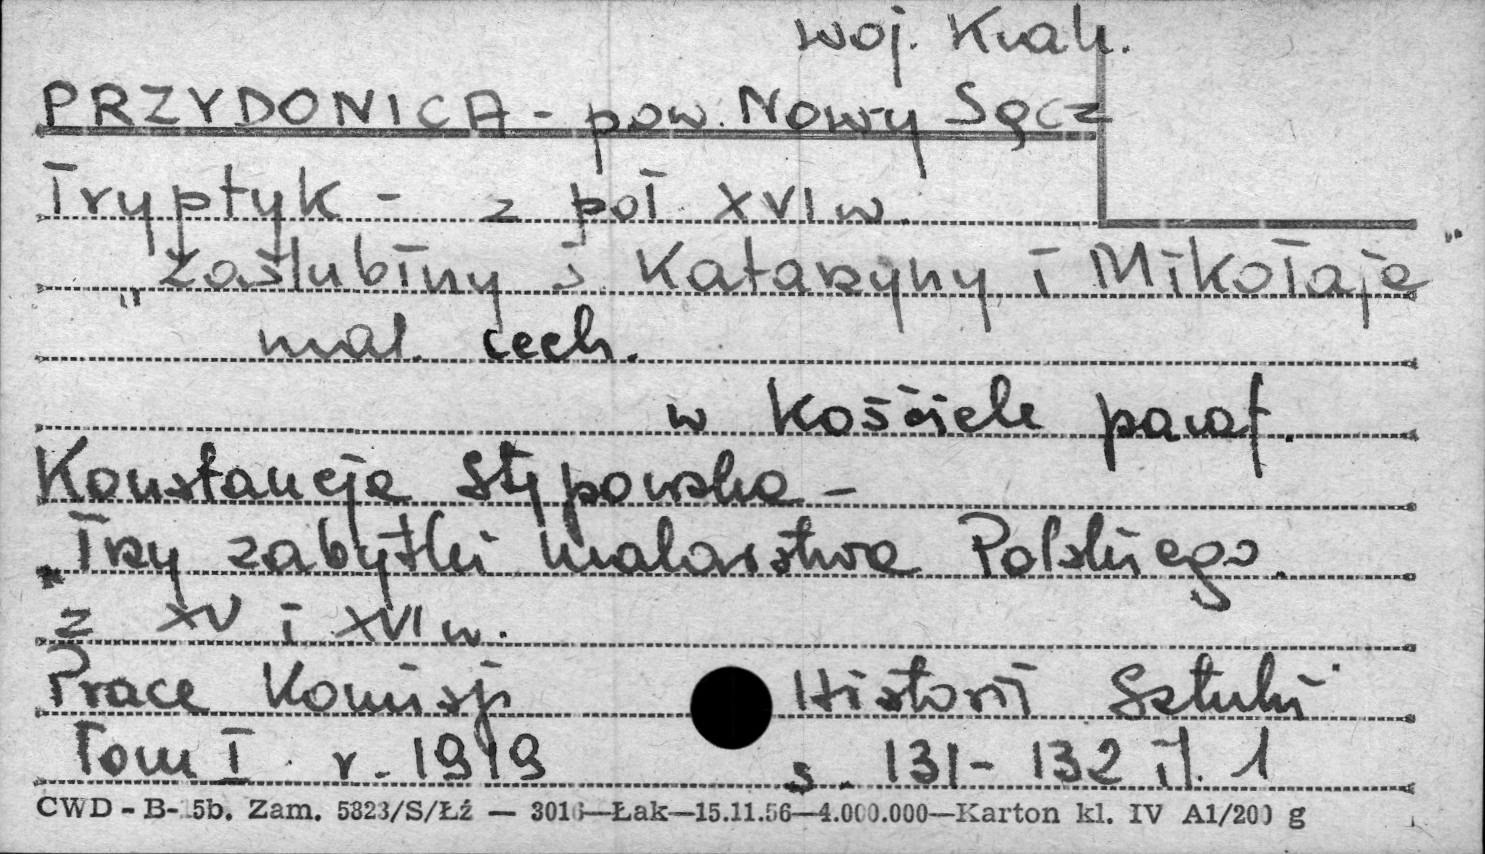 woj. Krak.
PRZYDONICA - pow. Nowy Sącz
Tryptyk - z poł XVI w.
"Zaślubiny ś. Katarzyny i Mikołaja"
mal. cech.
w Kościele paraf.
Konstancja Stępowska -
"Trzy zabytki malarstwa Polskiego
z XV i XVI w.
Prace Komisji Historii Sztuki
Tom I. r. 1919 s. 131-132 il. 1
CWD - B- 5b. Zam. 5823/S/Łź — 3016—Łak—15.11.56—4.000.000—Karton kl. IV A1/200 g